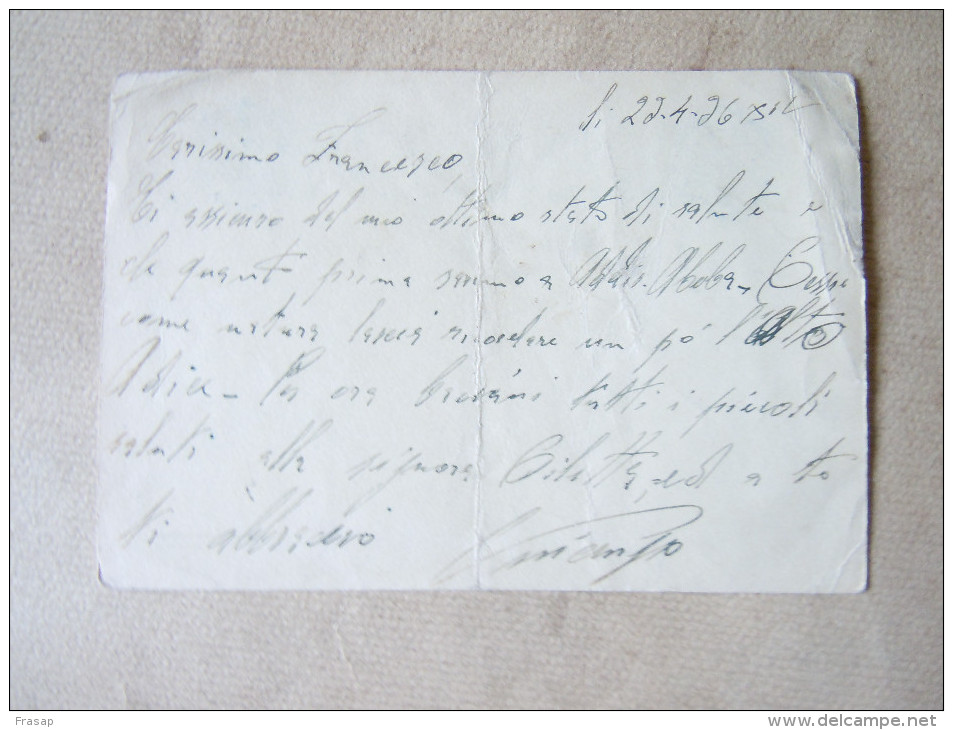 lì 22-4-36 XIV
Carissimo Francesco,
Ti assicuro del mio ottimo stato di salute e
che quanto prima saremo a Addis-Abeba,
come natura lascia ricordare un pò l'Alto
Adige - Per ora baciami tutti i piccoli
saluti alla signora ed a te
ti abbraccio
Frasap
www.delcampe.net